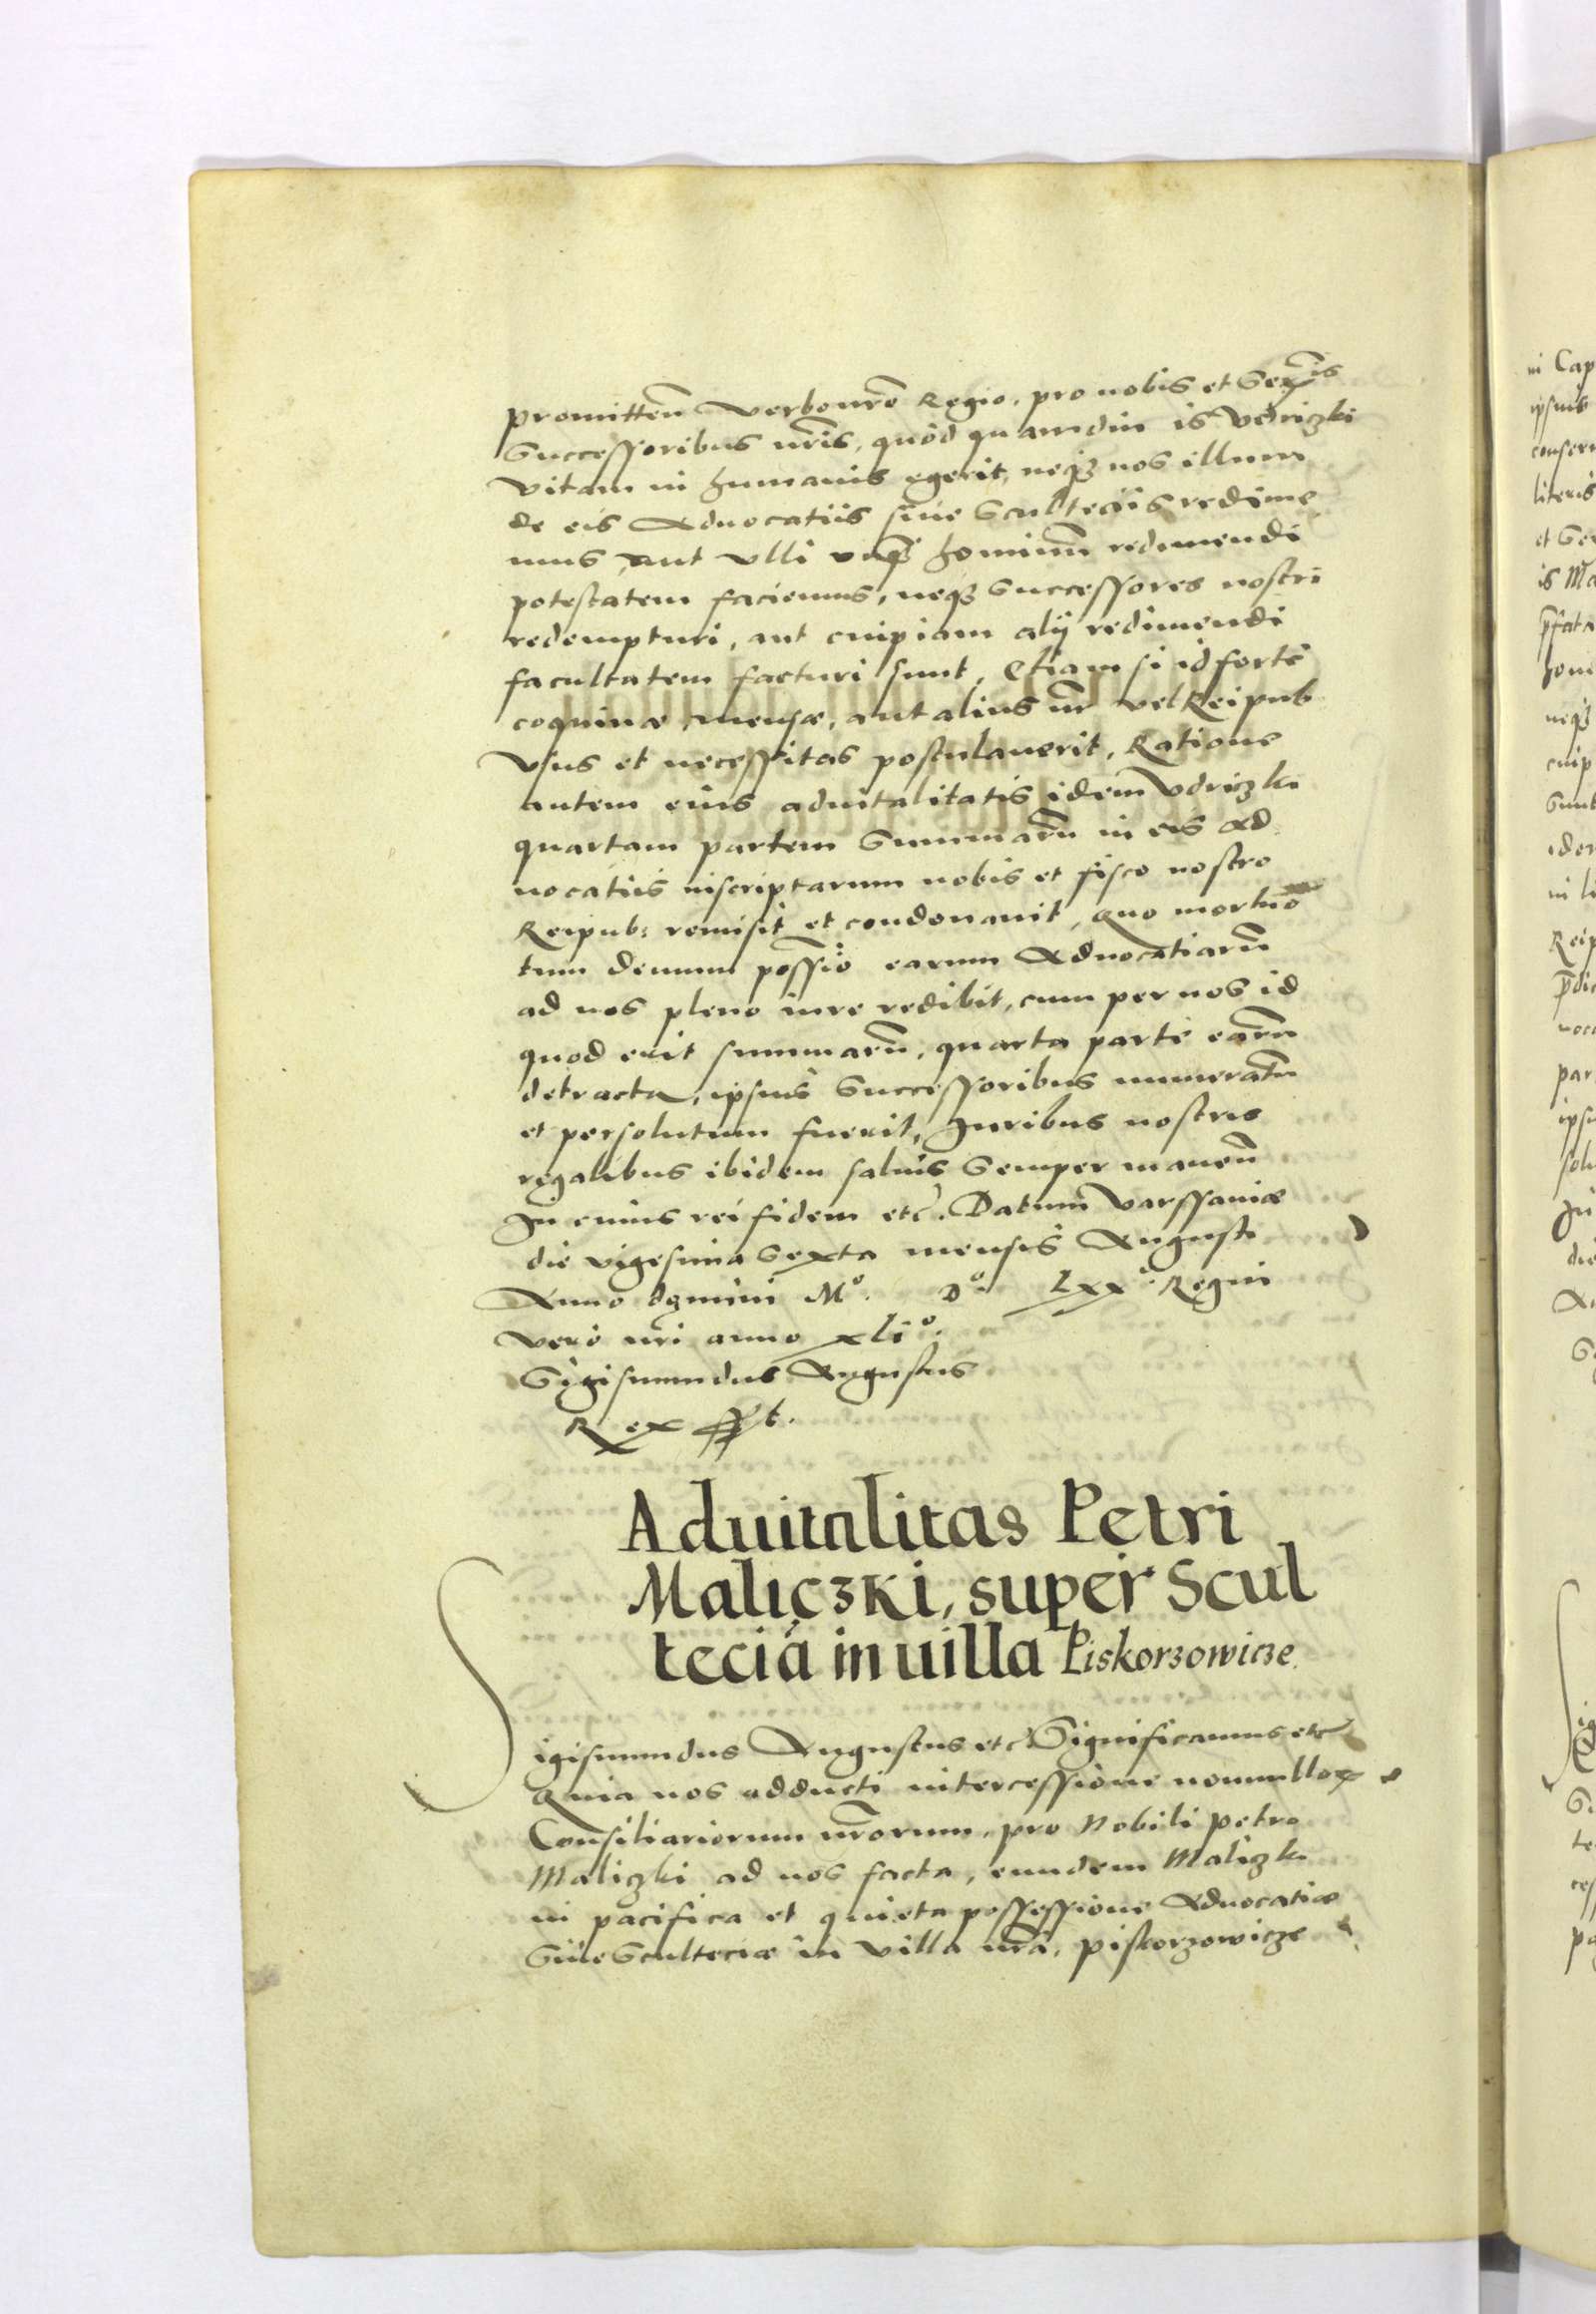 promitteñ verbo nr̃o Regio, pro nobis et Ser̃is
Successoribus nr̃is, quòd quamdiu is Vdriczki
vitam in humanis egerit, neqȝ nos illum
de eis Aduocatiis siue Scultecijs redime
mus, aut vlli vnqȝ hominum redimendi
potestatem faciemus, neqȝ Successores nostri
redempturi, aut cuipiam alij redimendi
facultatem facturi sunt, Etiam si id fortè
coquinæ, mensæ, aut alius nr̃ vel Reipub
vsus et necessitas postulauerit, Ratione
autem eius aduitalitatis idem Vdriczki
quartam partem Summarũ in eis Ad
uocatiis inscriptarum nobis et fisco nostro
Reipub: remisit et condonauit, Quo mortuo
tum demum possĩo earum Aduocatiarũ
ad nos pleno iure redibit, cum per nos id
quod erit summarũ, quarta parte earũ
detracta, ipsius Successoribus numeratũ
et persolutum fuerit, Juribus nostris
regalibus ibidem saluis Semper maneñ
In cuius rei fidem etc̃. Datum Varssauiæ
die vigesima Sexta mensis Augusti
Anno domini Mº. Dº. Lxxº Regni
verò nr̃i anno xliº.
Sigismundus Augustus
Rex sst.
Aduitalitas Petri
Maliczki, super Scul
tecia in uilla Piskorzowicze.
Sigismundus Augustus etc̃ Significamus etc̃
Quia nos adducti intercessione nonnullor
Consiliariorum nr̃orum, pro Nobili Petro
Maliczki ad nos facta, eundem Maliczki
in pacifica et quieta possessione Aduocatiæ
Siue Scultetiæ in villa nr̃a, Piskorzowicze